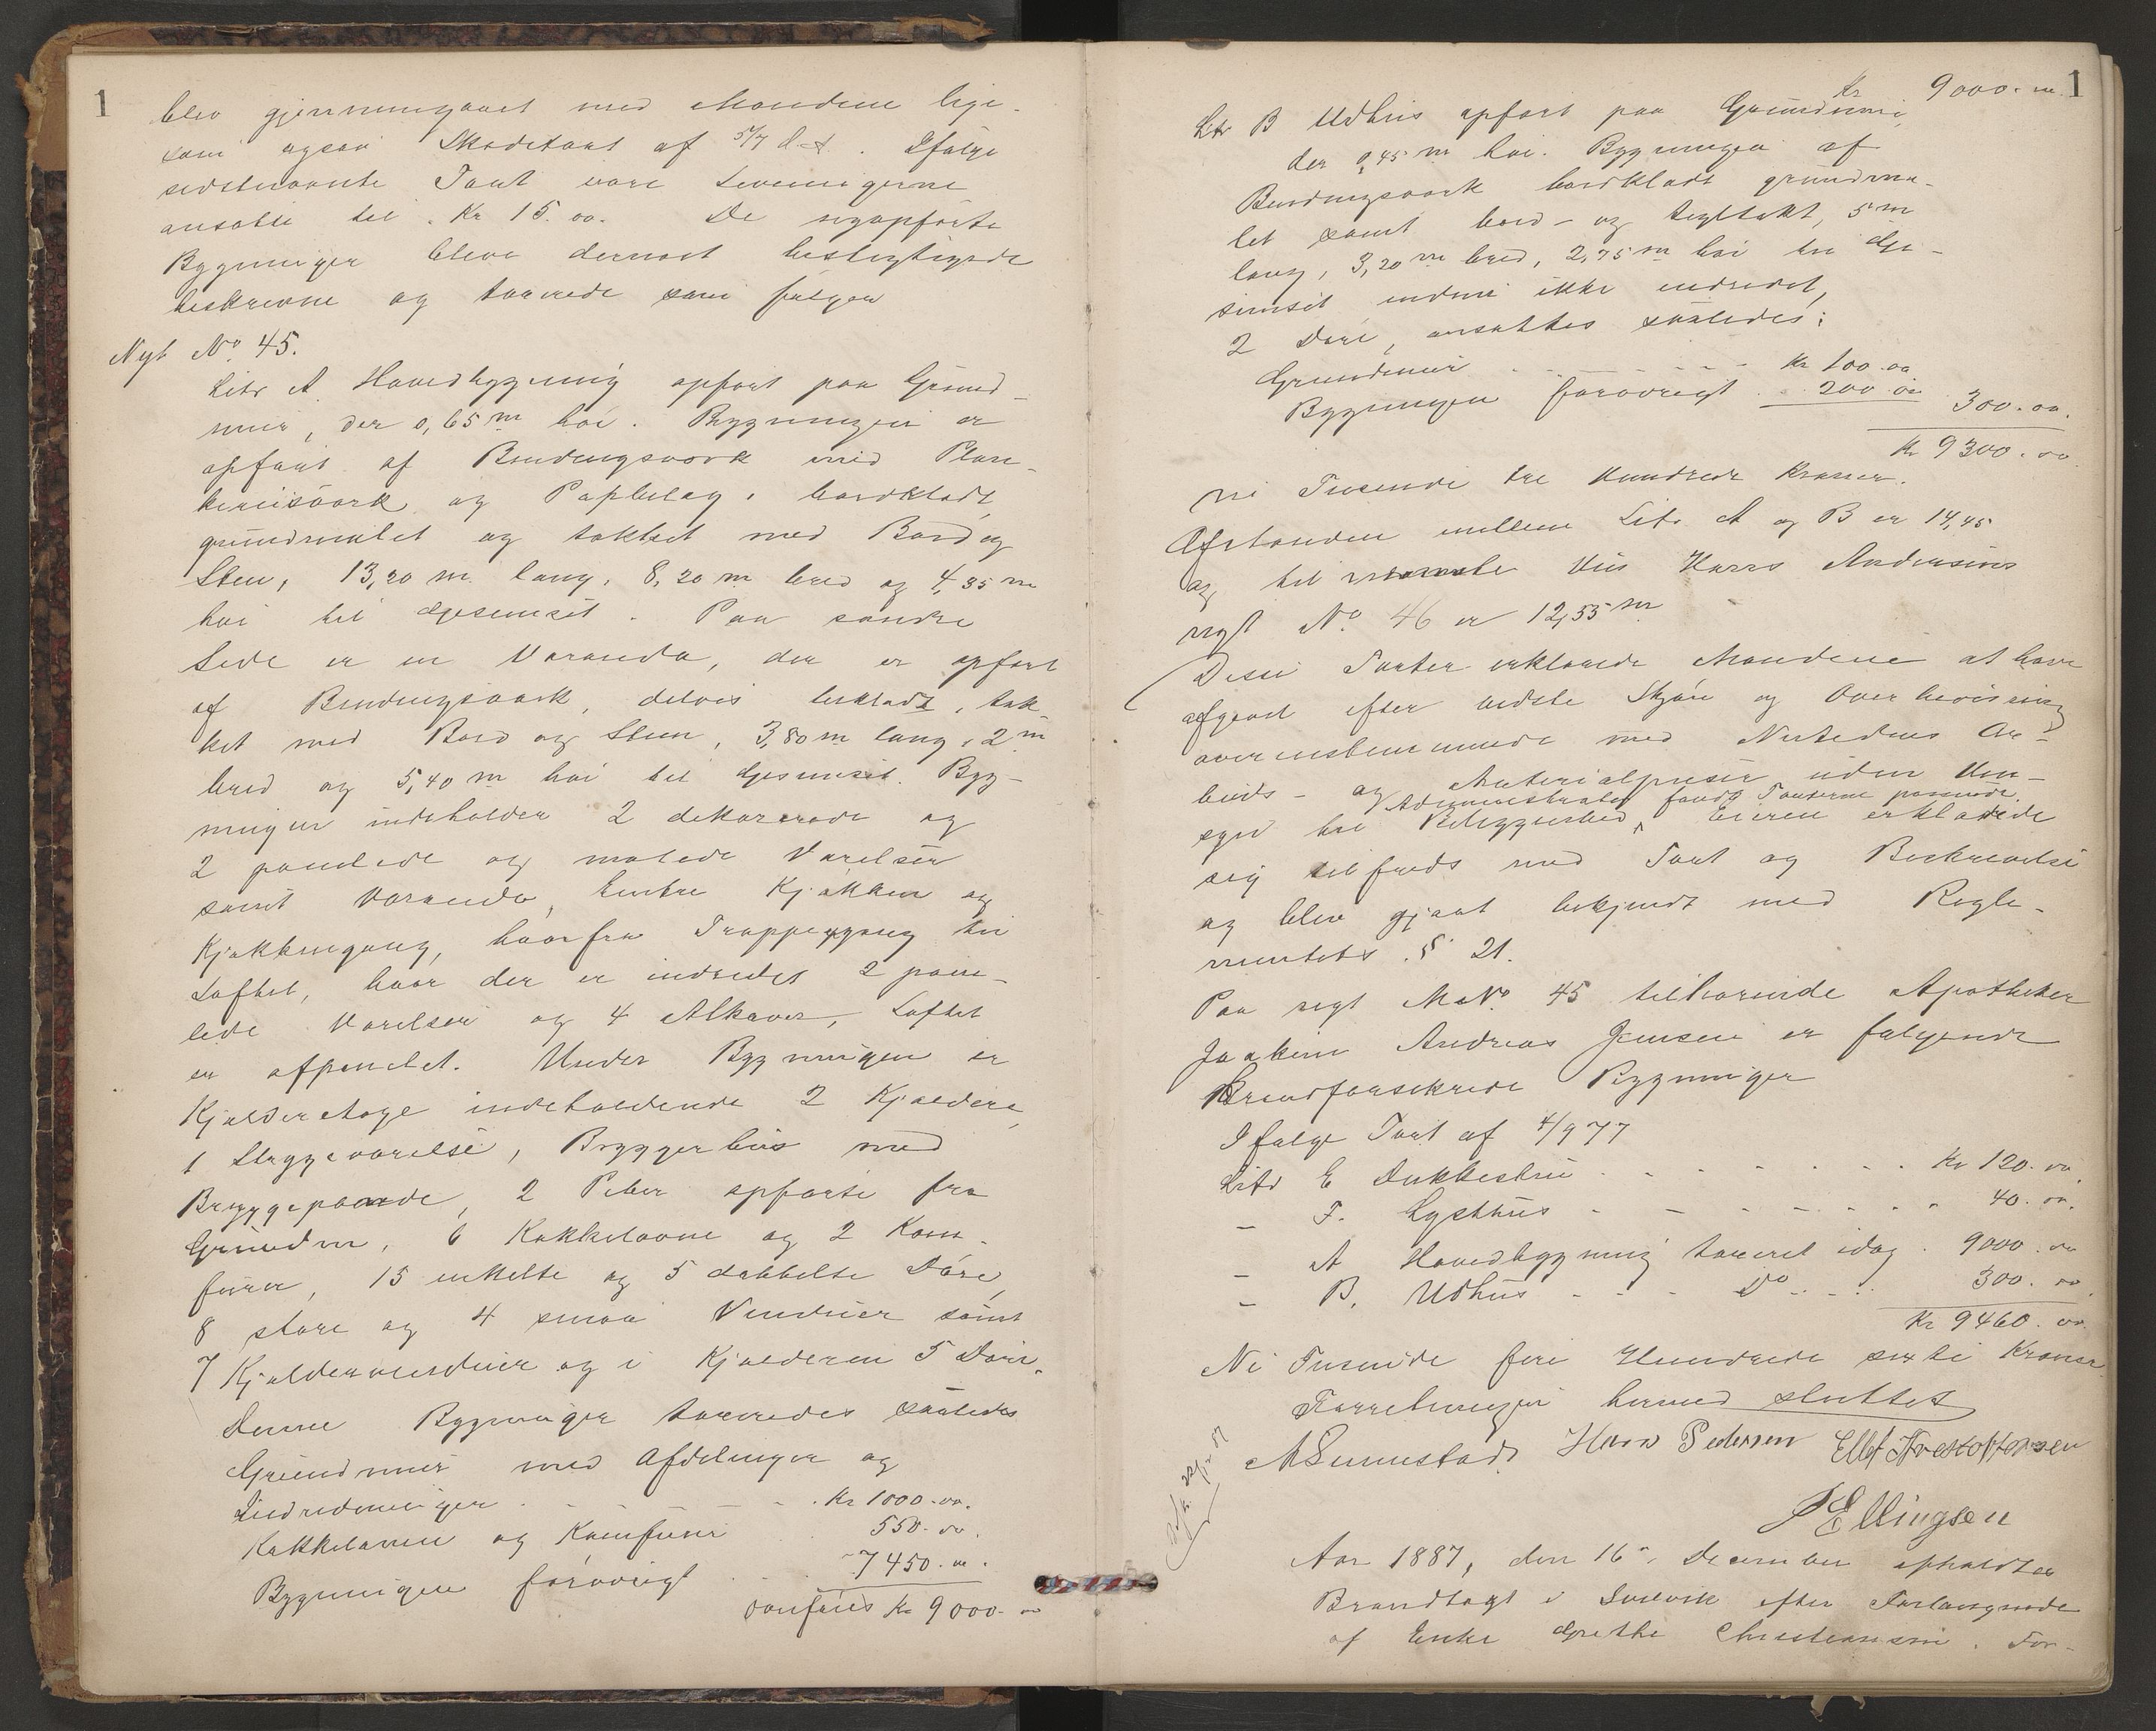 1
blev gjennemgaaet med Mændene lige-
som ogsaa Skadetaxt af 5/7 d. A. Ifølge
sidstnævnte Taxt vare Levningerne
ansatte til Kr 15.00. De nyopførte
Bygninger bleve dernæst besigtigede
beskrevne og taxerede som følger
Nyt No. 45.
Litr A. Hovedbygning opført paa Grund-
muur, der 0,65 m høi. Bygningen er
opført af Bindingsværk med Plan-
keværk og Papbelag, bordklædt,
grundmalet og tækket med Bord og
Steen, 13,20 m lang, 8,20 m bred og 4,35 m
høi til Gesimset. Paa søndre
Side er en Veranda, der er opført
af Bindingsværk, delvis beklædt, tæk-
ket med Bord og Steen, 3,80 m lang, 2 m
bred og 5,40 m høi til Gesimset. Byg-
ningen indeholder 2 dekorerede og
2 panelede og malede Værelser
samt Veranda, Entre Kjøkken og
Kjøkkengang, hvorfra Trappegang til
Loftet, hvor der er indredet 2 pane-
lede Værelser og 4 Alkover, Loftet
er afpanelet. Under Bygningen er
Kjælderetage indeholdende 2 Kjældere,
1 Strygeværelse, Bryggerhus med
Bryggepande, 2 Piber opførte fra
Grunden, 6 Kakkelovne og 2 Kom-
furer, 15 enkelte og 5 dobbelte Døre,
8 store og 4 smaa Vinduer samt
7 Kjældervinduer og i Kjælderen 5 Døre.
Denne Bygningen taxeredes saaledes
Grundmur med Afdelinger og
Indredninger . . . . Kr 1000.00.
Kakkelovne og Komfurer 550.00.
Bygningen forøvrigt . . 7450.00.
overføres Kr 9000.00
1
Kr 9000.00
Litr B Udhus opført paa Grundmur,
der 0,45 m høi. Bygningen af
Bindingsværk bordklædt grundma-
let samt bord- og tegltækt, 5 m
lang, 3,20 m bred, 2,75 m høi til Ge-
simset endnu ikke indredet,
2 Døre, ansattes saaledes:
Grundmur . . . . . Kr 100.00
Bygningen forøvrigt . 200.00 300.00.
Kr 9300.00
ni Tusende tre Hundrede Kroner.
Afstanden mellem Litr. A og B er 14,45
og til nærmeste Huus Hans Andersens
nyt No. 46 er 12,55 m
Disse Taxter erklærede Mændene at have
afgivet efter bedste Skjøn og Overbeviisning
overensstemmende med Nutidens Ar-
beids- og Materialpriser uden Hen-
Administrator fandt Taxterne passende.
syn til Beliggenhed, Eieren erklærede
sig tilfreds med Taxt og Beskrivelse
og blev gjort bekjendt med Regle-
mentets § 21.
Paa nyt M.No. 45 tilhørende Apotheker
Joakim Andreas Jensen er følgende
Brandforsikrede Bygninger
Ifølge Taxt af 4/9 77
Litr E Dukkestue . . . . . . Kr 120.00.
- F. Lysthus - - - - - 40.00.
- A Hovedbygning taxeret idag . 9000.00
- B. Udhus - - - Do . . . 300.00.
Kr 9460.00.
Ni Tusinde fire Hundrede sexti Kroner
Forretningen hermed sluttet
Hans Pedersen
P Ellingsen
Aar 1887, den 16de December opholdtes
Brandtaxt i Lurvik efter Forlangende
af Enke Grethe Christiansen. For-